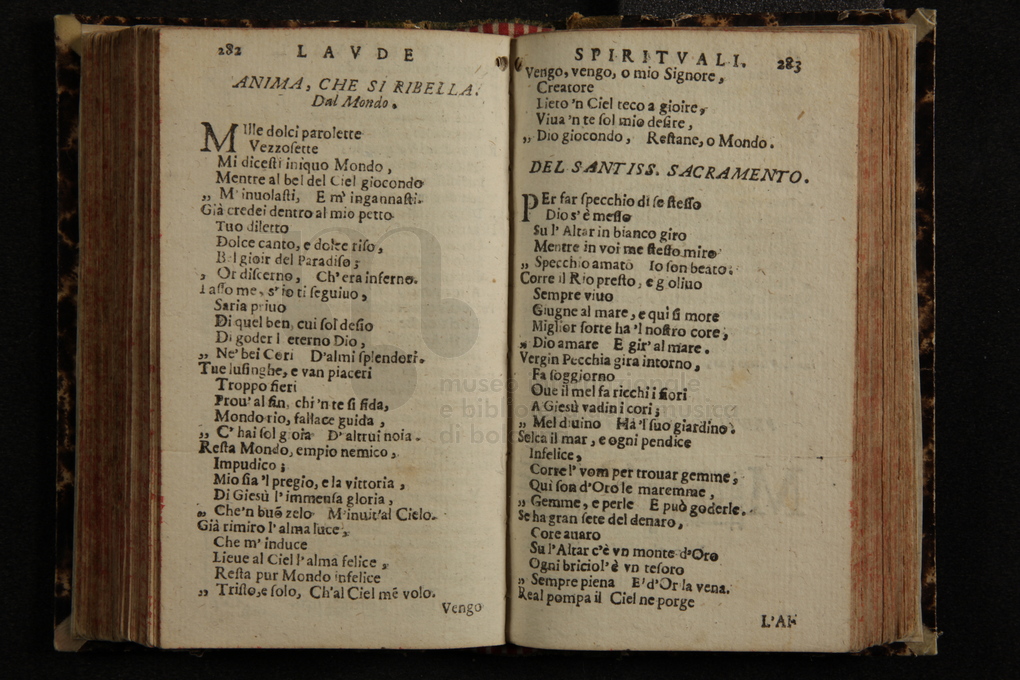 282 LAVDE
ANIMA, CHE SI RIBELLA.
Dal Mondo.
MIlle dolci parolette
Vezzosette
Mi dicesti iniquo Mondo,
Mentre al bel del Ciel giocondo
„ M'inuolasti, E m'ingannasti.
Già credei dentro al mio petto
Tuo diletto
Dolce canto, e dolce riso,
Bel gioir del Paradiso;
„ Or discerno, Ch'era inferno.
Lasso me, s'io ti seguiuo,
Saria priuo
Di quel ben, cui sol desio
Di goder l'eterno Dio,
„ Ne' bei Cori D'almi splendori.
Tue lusinghe, e van piaceri
Troppo fieri
Prou' al fin, chi 'n te si fida,
Mondo rio, fallace guida,
„ C'hai sol gioia D'altrui noia.
Resta Mondo, empio nemico,
Impudico;
Mio sia 'l pregio, e la vittoria,
Di Giesù l'immensa gloria,
„ Che'n buõ zelo M'inuit'al Cielo.
Già rimiro l'alma luce,
Che m'induce
Lieue al Ciel l'alma felice,
Resta pur Mondo infelice
„ Tristo, e solo, Ch'al Ciel mẽ volo.
Vengo
SPIRITVALI. 283
Vengo, vengo, o mio Signore,
Creatore
Lieto 'n Ciel teco a gioire,
Viua 'n te sol mio desire,
„ Dio giocondo, Restane, o Mondo.
DEL SANTISS. SACRAMENTO.
PEr far specchio di se stesso
Dio s'è messo
Su l'Altar in bianco giro
Mentre in voi me stesso miro
„ Specchio amato Io son beato.
Corre il Rio presto, e goliuo
Sempre viuo
Giugne al mare, e qui si more
Miglior sorte ha 'l nostro core,
„ Dio amare E gir' al mare.
Vergin Pecchia gira intorno,
Fa soggiorno
Oue il mel fa ricchi i fiori
A Giesù vadin i cori;
„ Mel diuino Ha 'l suo giardino.
Solca il mar, e ogni pendice
Infelice,
Corre l'vom per trouar gemme,
Qui son d'Oro le maremme,
„ Gemme, e perle E può goderle.
Se ha gran sete del denaro,
Core auaro
Su l'Altar c'è vn monte d'Oro
Ogni briciol'è vn tesoro
„ Sempre piena E'd'Or la vena.
Real pompa il Ciel ne porge
L'AL
museo
e biblioteca
musica
di bologna